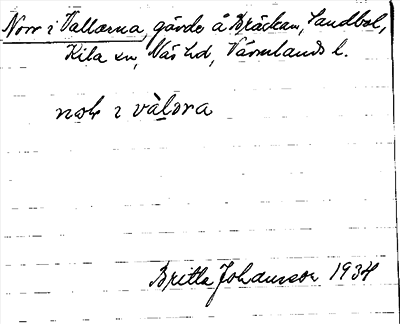 Norr i Vallarna, gärde å Bräckan, Sandbol,
Kila sn, Näs hd, Värmlands l.
i vàlɒra
Britta Johansson 1934